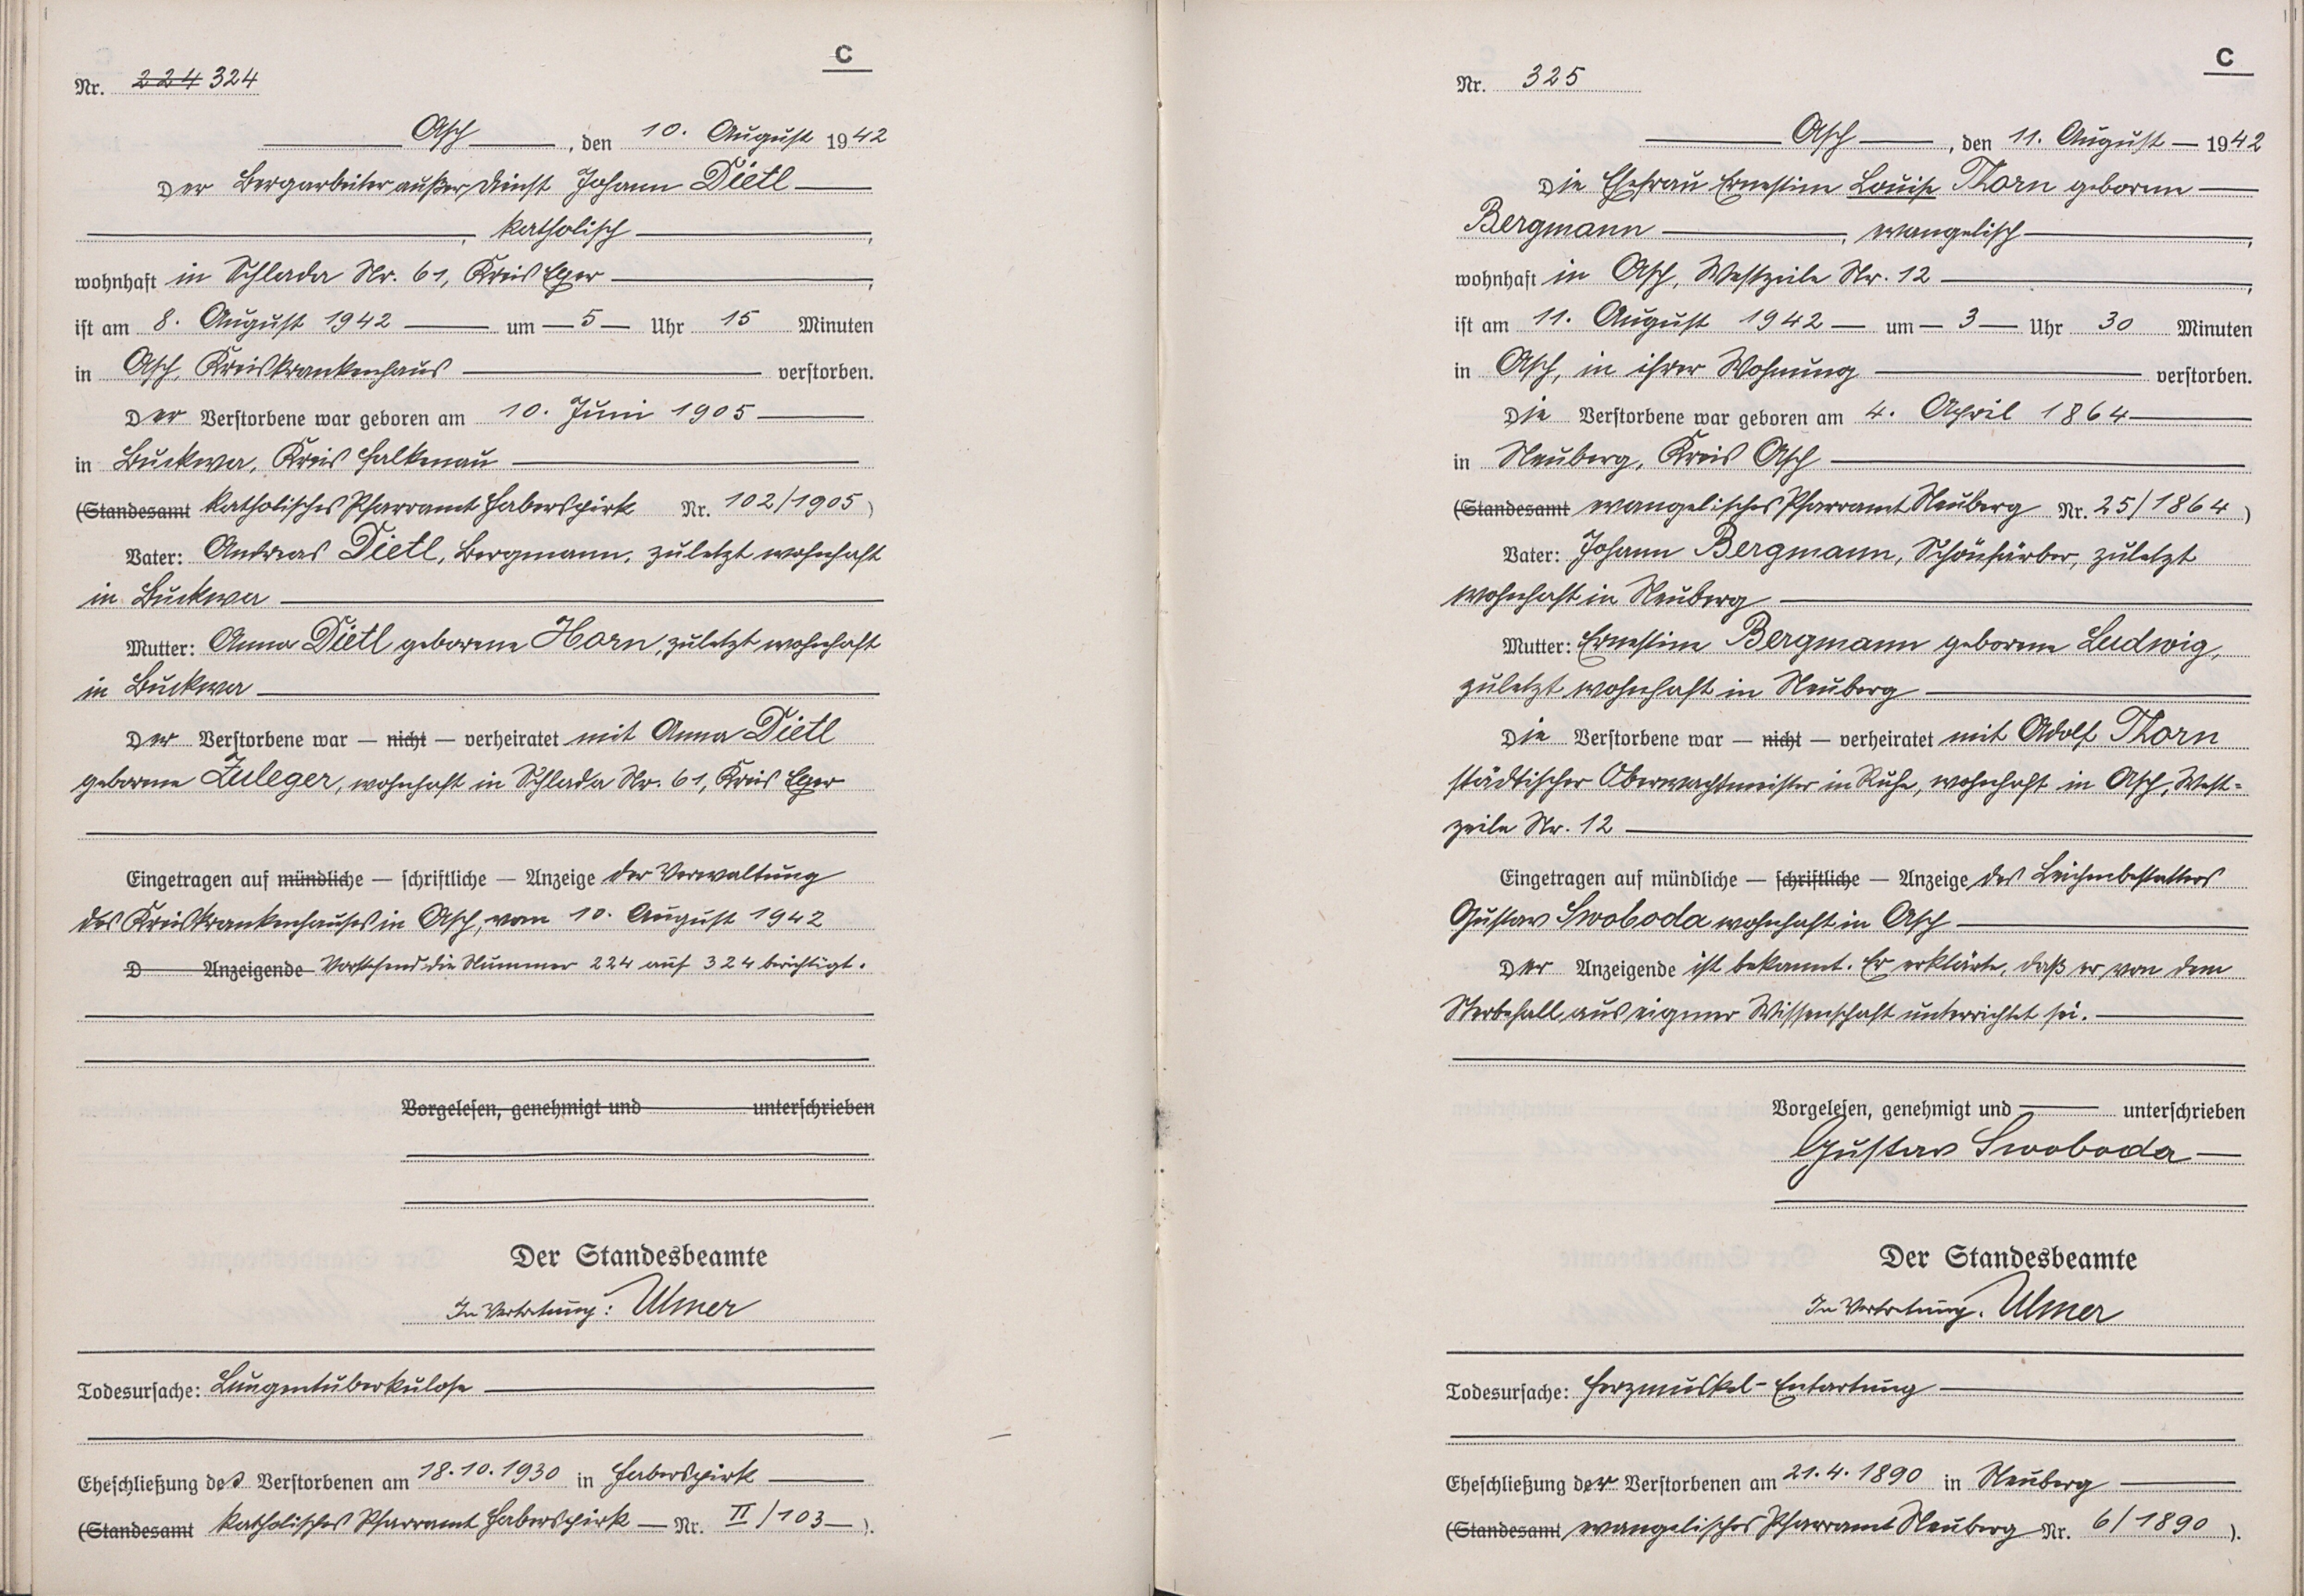 C
Nr. 224 324
Asch, den 10. August 1942
Der Bergarbeiter außer Dienst Johann Dietl
, katholisch,
wohnhaft in Schlada Nr. 61, Kreis Eger,
ist am 8. August 1942 um 5 Uhr 15 Minuten
in Asch, Kreiskrankenhaus verstorben.
Der Verstorbene war geboren am 10. Juni 1905
in Buckwa, Kreis Falkenau
(Standesamt katholisches Pfarramt Haberspirk Nr. 102/1905)
Vater: Andreas Dietl, Bergmann, zuletzt wohnhaft
in Buckwa
Mutter: Anna Dietl geborene Horn, zuletzt wohnhaft
in Buckwa
Der Verstorbene war — nicht — verheiratet mit Anna Dietl
geborene Zuleger, wohnhaft in Schlada Nr. 61, Kreis Eger
Eingetragen auf mündliche — schriftliche — Anzeige der Verwaltung
des Kreiskrankenhauses in Asch, vom 10. August 1942
D Anzeigende Vorstehend die Nummer 224 auf 324 berichtigt.
Vorgelesen, genehmigt und unterschrieben
Der Standesbeamte
In Vertretung: Ulmer
Todesursache: Lungentuberkulose
Eheschließung des Verstorbenen am 18.10.1930 in Haberspirk
(Standesamt katholisches Pfarramt Haberspirk — Nr. II/103 —).
C
Nr. 325
Asch, den 11. August — 1942
Die Ehefrau Ernestine Louise Thorn geborene
Bergmann, evangelisch,
wohnhaft in Asch, Westzeile Nr. 12,
ist am 11. August 1942 — um — 3 — Uhr 30 Minuten
in Asch, in ihrer Wohnung verstorben.
Die Verstorbene war geboren am 4. April 1864
in Neuberg, Kreis Asch
(Standesamt evangelisches Pfarramt Neuberg Nr. 25/1864)
Vater: Johann Bergmann, Schönfärber, zuletzt
wohnhaft in Neuberg
Mutter: Ernestine Bergmann geborene Ludwig,
zuletzt wohnhaft in Neuberg
Die Verstorbene war — nicht — verheiratet mit Adolf Thorn
städtischer Oberwachtmeister in Ruhe, wohnhaft in Asch, West=
zeile Nr. 12
Eingetragen auf mündliche — schriftliche — Anzeige des Leichenbestatters
Gustav Swoboda wohnhaft in Asch
Der Anzeigende ist bekannt. Er erklärte, daß er von dem
Sterbefall aus eigener Wissenschaft unterrichtet sei.
Vorgelesen, genehmigt und unterschrieben
Gustav Swoboda
Der Standesbeamte
In Vertretung: Ulmer
Todesursache: Herzmuskel-Entartung
Eheschließung der Verstorbenen am 21.4.1890 in Neuberg
(Standesamt evangelisches Pfarramt Neuberg Nr. 6/1890).